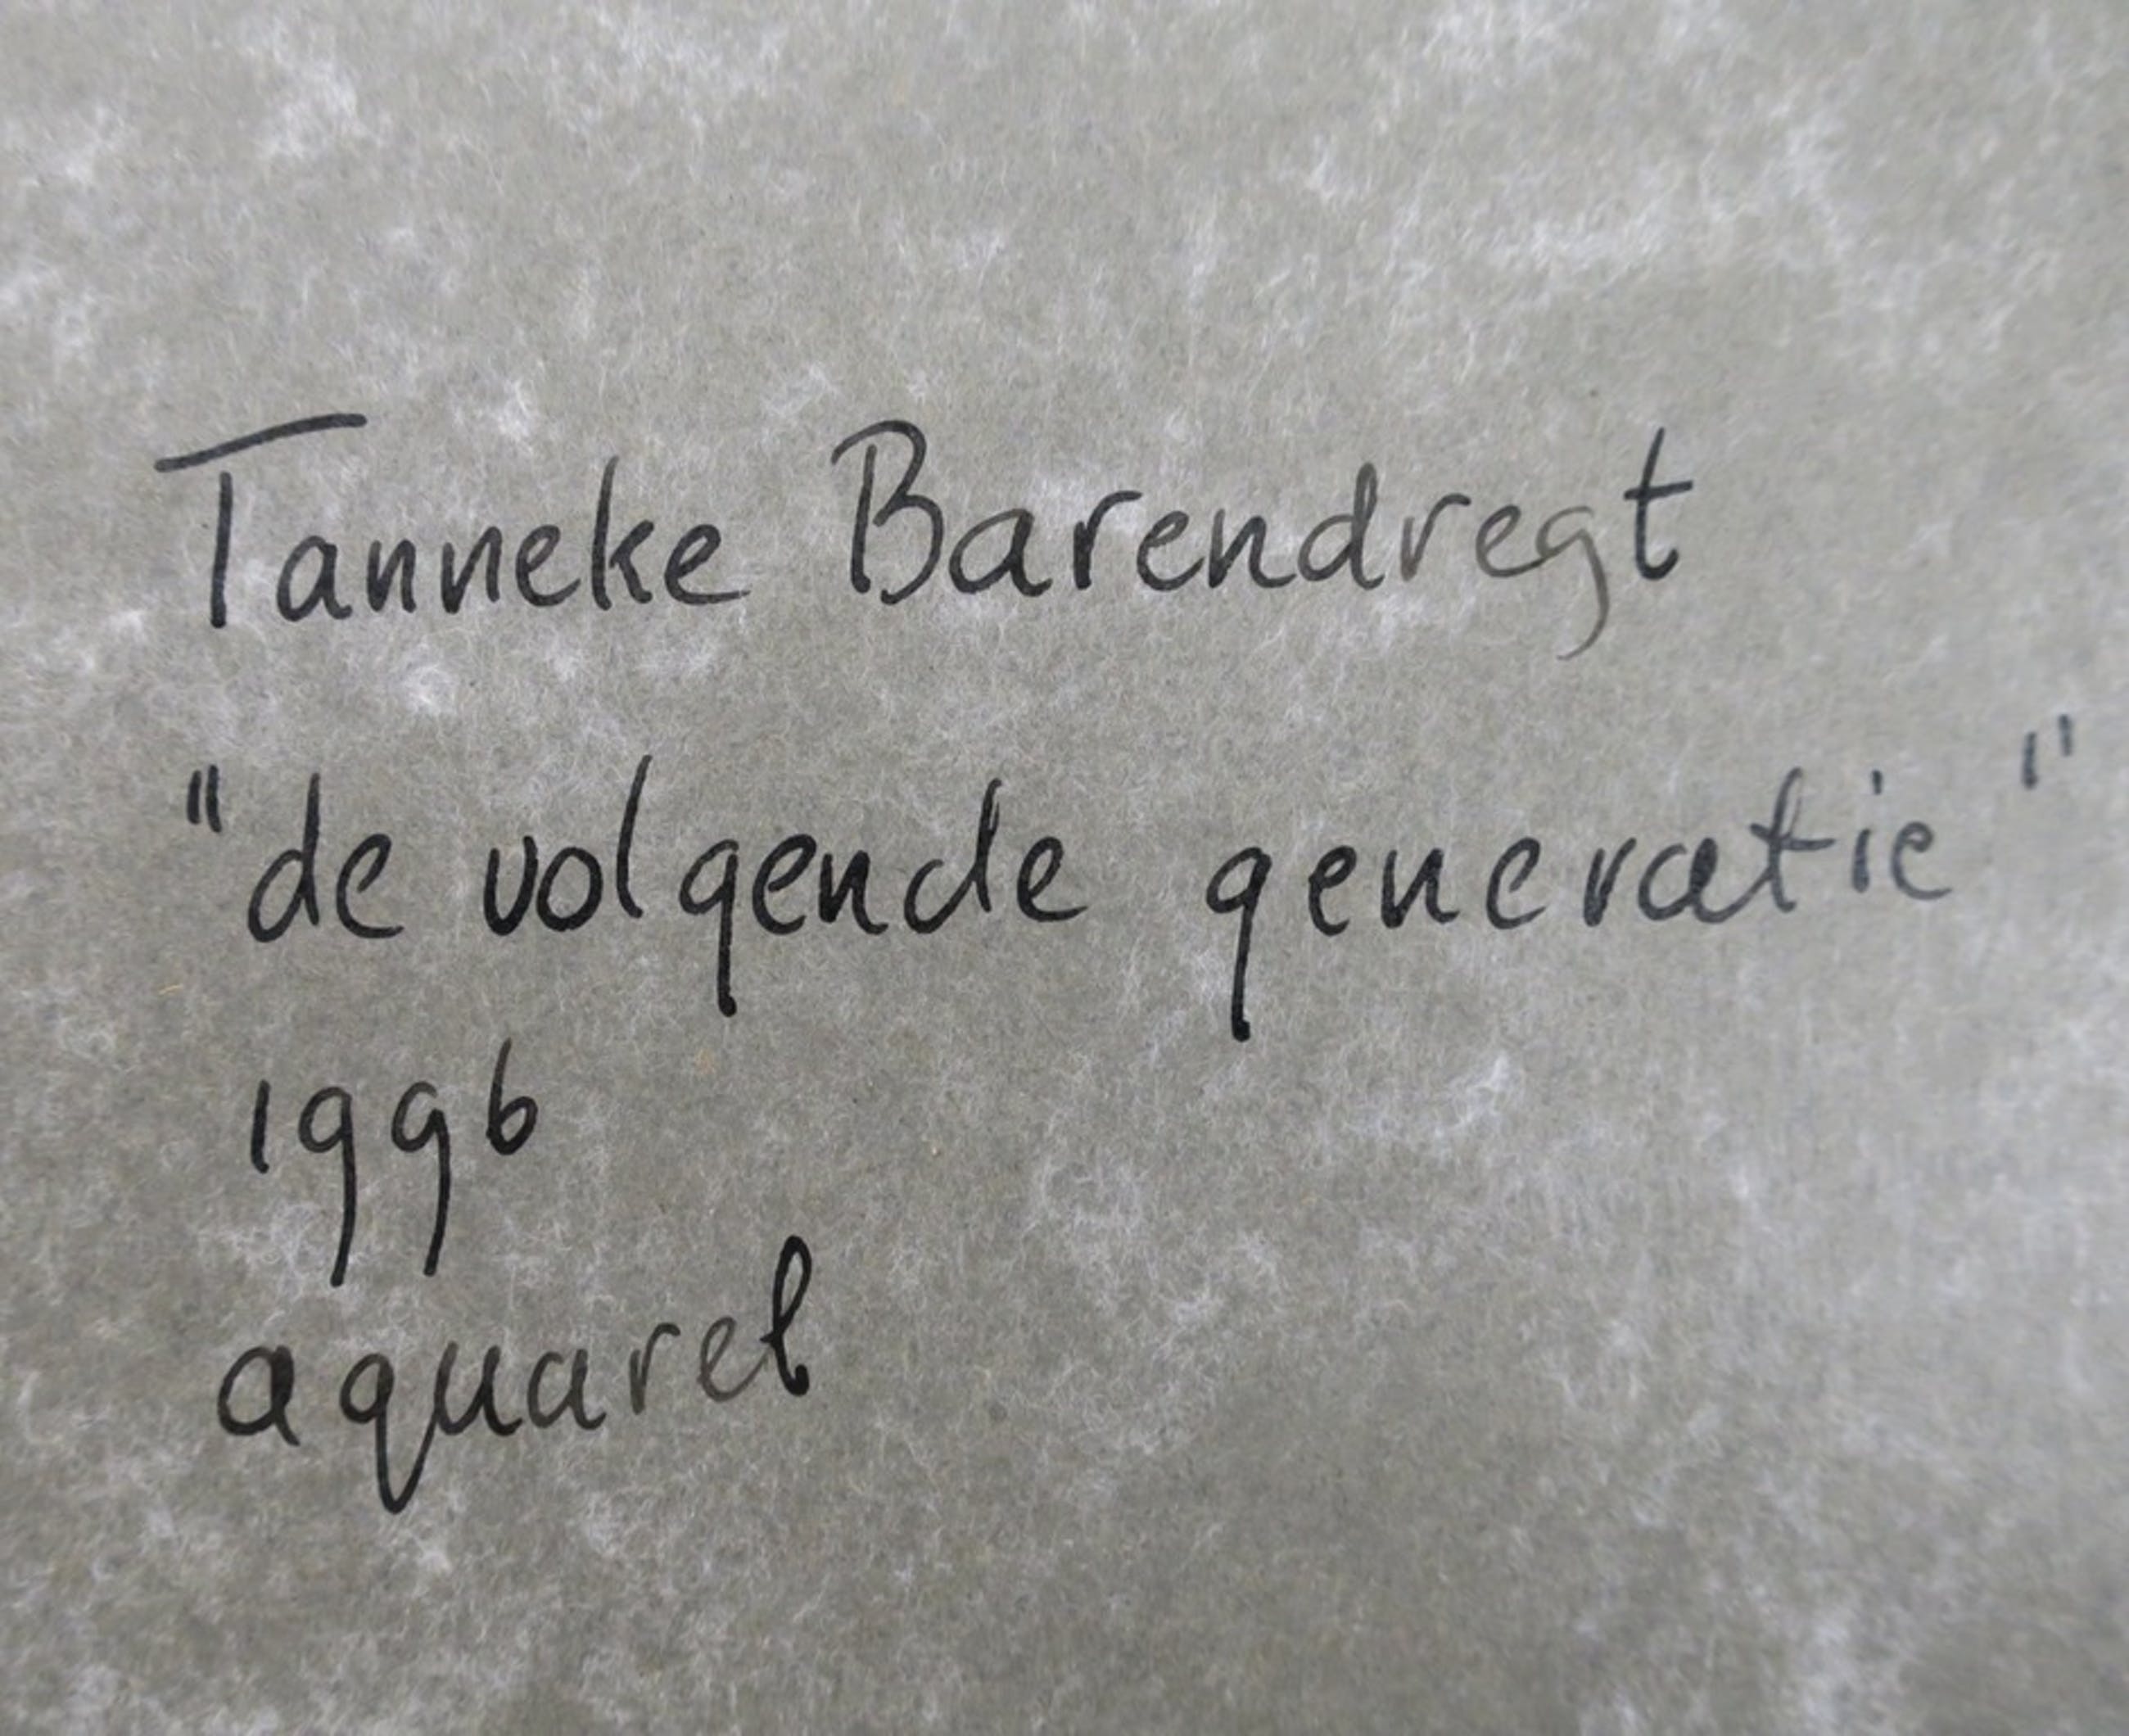 Tanneke Barendregt
"de volgende generatie"
1996
aquarel